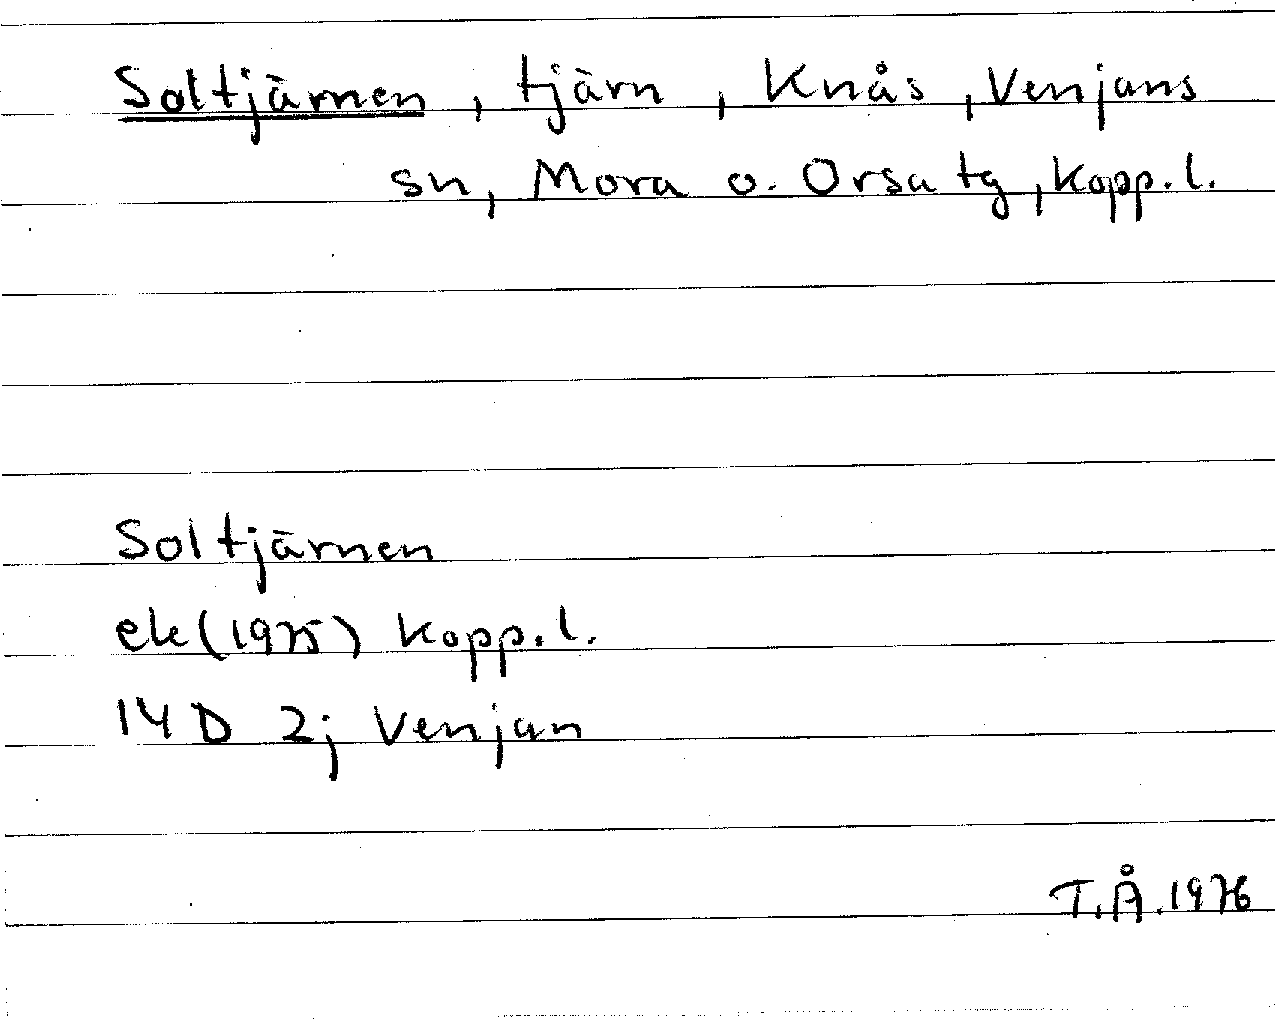 Soltjärnen, tjärn, Knås, Venjans
sn, Mora o. Orsa tg, Kopp.l.
Soltjärnen
ek(1975) Kopp.l.
14 D 2j Venjan
T.Å.1976